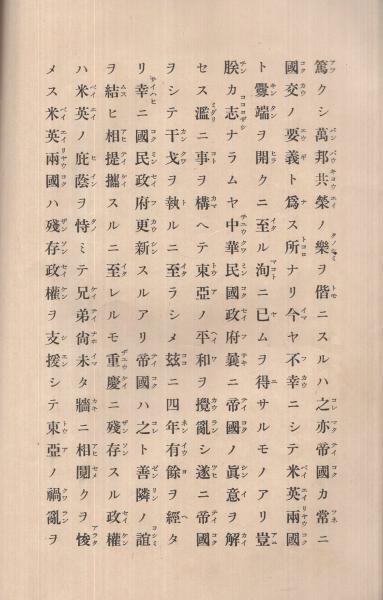 篤クシ萬邦共榮ノ樂ヲ偕ニスルハ之亦帝國カ常ニ
國交ノ要義ト爲ス所ナリ今ヤ不幸ニシテ米英兩國
ト釁端ヲ開クニ至ル洵ニ已ムヲ得サルモノアリ豈
朕カ志ナラムヤ中華民國政府曩ニ帝國ノ眞意ヲ解
セス濫ニ事ヲ構ヘテ東亞ノ平和ヲ攪亂シ遂ニ帝國
ヲシテ干戈ヲ執ルニ至ラシメ玆ニ四年有餘ヲ經タ
リ幸ニ國民政府更新スルアリ帝國ハ之ト善隣ノ誼
ヲ結ヒ相提攜スルニ至レルモ重慶ニ殘存スル政權
ハ米英ノ庇蔭ヲ恃ミテ兄弟尙未タ牆ニ相鬩クヲ悛
メス米英兩國ハ殘存政權ヲ支援シテ東亞ノ禍亂ヲ